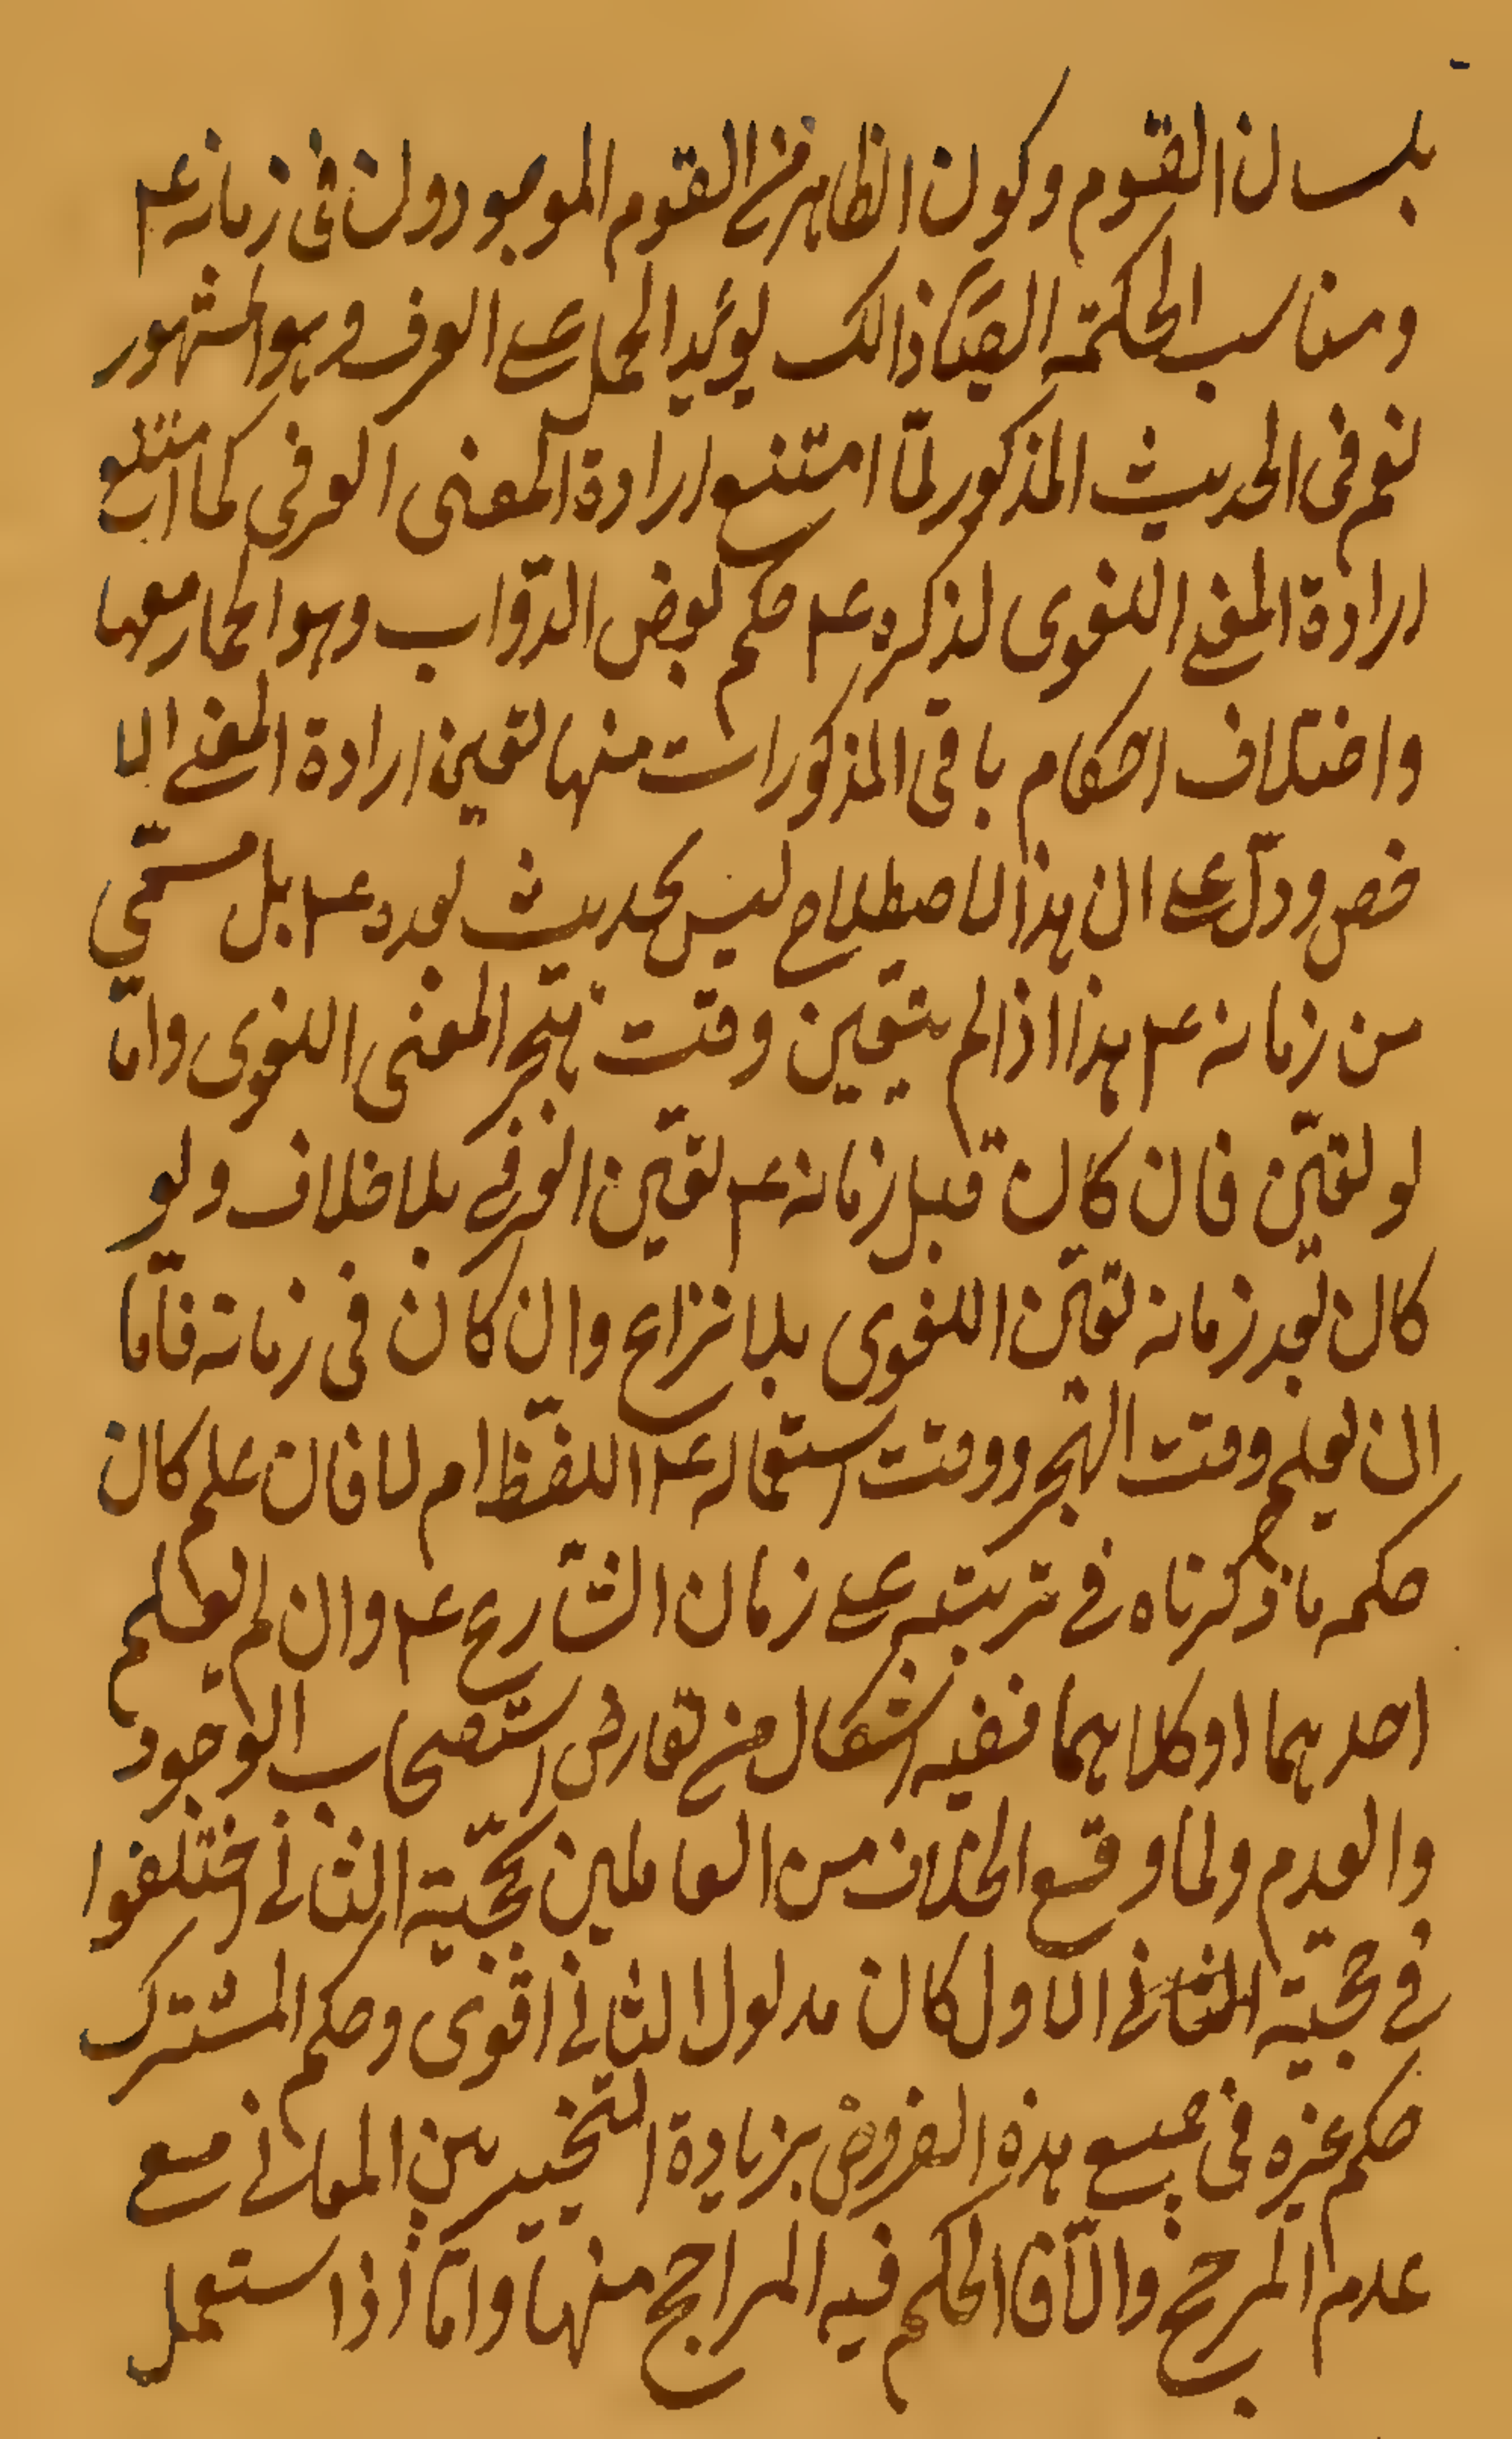 بلسان القوم وكون الظاهر من القوم الموجودون فى زمانه ع م
ومناسب الحكمة ايضًا ذالك يؤيد الحمل على العرف وهو المشهور
نعم فى الحديث المذكور لمّا امتنع ارادة المعنى العرفى كما امتنع
ارادة المعنى اللغوى لذكره ع م حكم بعض الدّواب وهو الحمار معها
واختلاف احكام باقى المذكورات منها تعين ارادة المعنى الا
خص ودلّ على ان هذا الاصطلاح ليس بحديث بعده ع م بل مستمّى
من زمانه ع م هذا اذا لم يتعين وقت هجر المعنى اللغوى وامّا
لو تعيّن فان كان قبل زمانه ع م تعيّن العرفي بلا خلاف ولو
كان بعد زمانه تعيّن اللغوى بلا نزاع وان كان فى زمانه فامّا
ان يعلم وقت الهجر ووقت استعماله ع م اللفظ ام لا فان علم كان
حكمه ما ذكرناه في تربته على زمان الشّارع ع م وان لم يعلم
احدهما او كلاهما ففيه اشكال من تعارض استصحاب الوجود
والعدم ولما وقع الخلاف من العاملين بحجّية الثاني اختلفوا
في حجيّة الثاني الاول كان مدلول الثاني اقوى وحكم المشترك
حكم غيره فى جميع هذه الفروض بزيادة التخيير بين المعاني مع
عدم المرجح والّا فالحكم فيه المراجح منها وامّا اذا استعمل